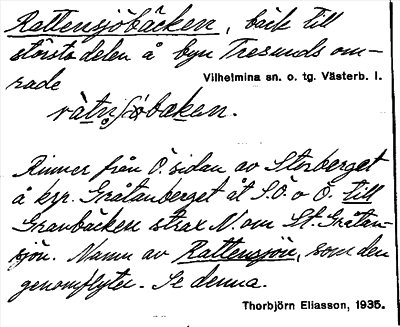 Rattensjöbäcken, bäck till
största delen å byn Tresunds om-
råde
Vilhelmina sn. o. tg. Västerb. l.
Rinner från Ö. sidan av Storberget
å kr. Gråtanberget åt S.O. o Ö. till
Granbäcken strax N. om St. Gråtan-
sjön. Namn av Rattensjön, som den
genomflyter. Se denna.
Thorbjörn Eliasson, 1935.